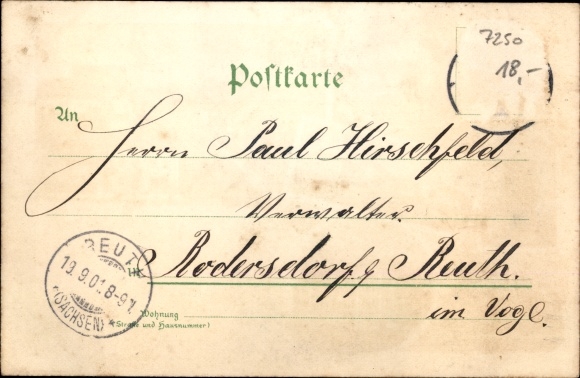 7250
18,-
Postkarte
An
Herrn Paul Hirschfeld,
Verwalter.
in Rodersdorf Reuth.
im Vogl.
Wohnung
(Straße und Hausnummer)
REUTH
19.9.01.8-9V.
(SACHSEN)